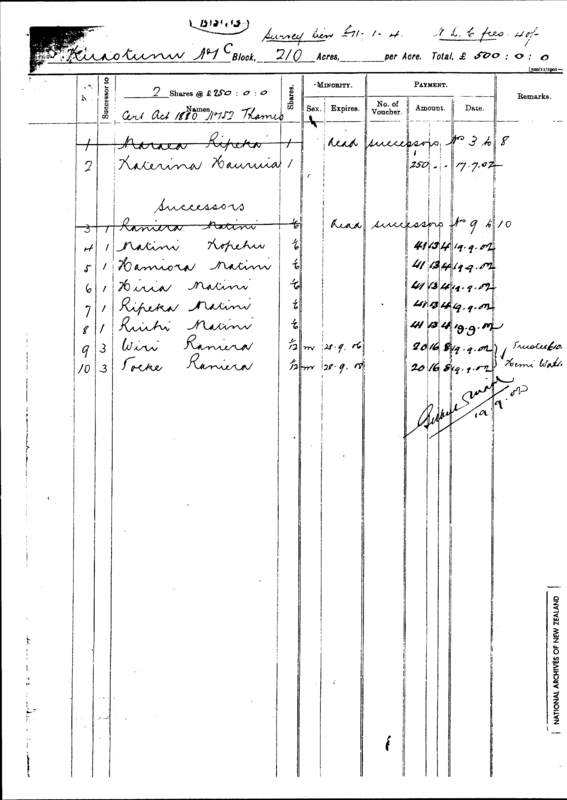 Survey lien £11-1-4. N.L.C. fees 40/-
No. 1C Block, 210 Acres, per Acre. Total, £ 500 : 0 : 0
Successor to
2 Shares @ £ 250 : 0 : 0
Names.
Cert Act 1880 No 152 Thames
Shares.
MINORITY.
Sex.
Expires.
PAYMENT.
No. of Voucher.
Amount.
Date.
Remarks.
1 Maraea Ripeka 1 Read successors Nos 3 to 8
2 Katerina Hauruia 1 250 . . . 17.7.02
Successors
3 1 Raniera Matini 1/6 Read successors Nos 9 to 10
4 1 Matini Kopehu 1/6 41 13 4 19.9.02
5 1 Hamiora Matini 1/6 41 13 4 19.9.02
6 1 Hiria Matini 1/6 41 13 4 19.9.02
7 1 Ripeka Matini 1/6 41 13 4 19.9.02
8 1 Matini 1/6 41 13 4 19.9.02
9 3 Wiri Raniera 1/12 m 28.9.06 20 16 8 19.9.02
10 3 Raniera 1/12 m 28.9. 20 16 8 19.9.02
19.9.02
NATIONAL ARCHIVES OF NEW ZEALAND